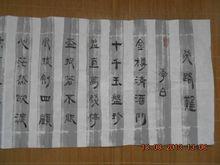 行路難
李白
金樽清酒斗
十千玉盤珍
羞直萬錢停
杯投箸不能
食拔劍四顧
心茫然欲渡